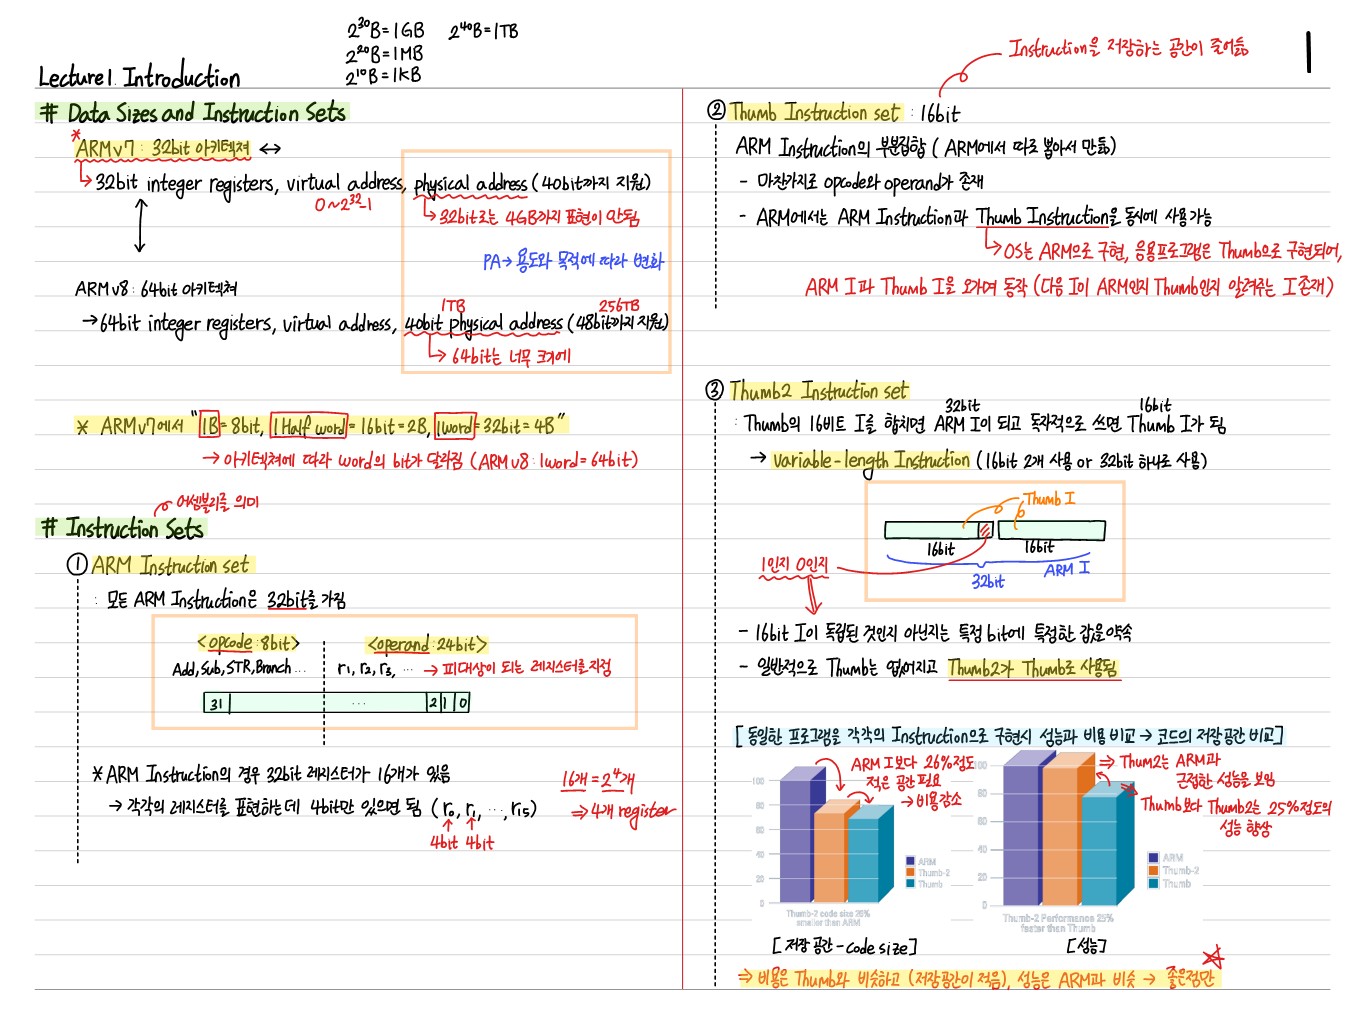 2³⁰B = 1GB 2⁴⁰B = 1TB
2²⁰B = 1MB
2¹⁰B = 1KB
Lecture1. Introduction
1
# Data Sizes and Instruction Sets
* ARMv7 : 32bit 아키텍쳐 ↔
↳ 32bit integer registers, virtual address, physical address (40bit까지 지원)
0 ~ 2³²-1
↳ 32bit로는 4GB까지 표현이 안됨
PA → 용도와 목적에 따라 변화
ARMv8 : 64bit 아키텍쳐
1TB 256TB
→ 64bit integer registers, virtual address, 40bit physical address (48bit까지 지원)
↳ 64bit는 너무 크기에
* ARMv7에서 "1B = 8bit, 1Half word = 16bit = 2B, 1word = 32bit = 4B"
→ 아키텍쳐에 따라 word의 bit가 달라짐 (ARMv8 : 1word = 64bit)
어셈블리를 의미
# Instruction Sets
① ARM Instruction set
: 모든 ARM Instruction은 32bit를 가짐
<opcode : 8bit> <operand : 24bit>
Add, Sub, STR, Branch ... r₁, r₂, r₃, ... → 피대상이 되는 레지스터를 지정
31 ... 2 1 0
* ARM Instruction의 경우 32bit 레지스터가 16개가 있음
→ 각각의 레지스터를 표현하는데 4bit만 있으면 됨 (r₀, r₁, ..., r₁₅)
4bit 4bit
16개 = 2⁴개
⇒ 4개 register
Instruction을 저장하는 공간이 줄어듦
② Thumb Instruction set : 16bit
ARM Instruction의 부분집합 (ARM에서 따로 뽑아서 만듦)
- 마찬가지로 opcode와 operand가 존재
- ARM에서는 ARM Instruction과 Thumb Instruction을 동시에 사용가능
↳ OS는 ARM으로 구현, 응용프로그램은 Thumb으로 구현되어,
ARM I과 Thumb I을 오가며 동작 (다음 I이 ARM인지 Thumb인지 알려주는 I 존재)
③ Thumb2 Instruction set
32bit 16bit
: Thumb의 16비트 I를 합치면 ARM I이 되고 독자적으로 쓰면 Thumb I가 됨
→ variable-length Instruction (16bit 2개 사용 or 32bit 하나로 사용)
Thumb I
16bit 16bit
ARM I
32bit
1인지 0인지
- 16bit I이 독립된 것인지 아닌지는 특정 bit에 특정한 값을 약속
- 일반적으로 Thumb는 없어지고 Thumb2가 Thumb로 사용됨
[ 동일한 프로그램을 각각의 Instruction으로 구현시 성능과 비용 비교 → 코드의 저장공간 비교 ]
ARM I보다 26%정도
적은 공간 필요
→ 비용감소
100
80
60
40
20
0
ARM
Thumb-2
Thumb
Thumb-2 code size 26%
smaller than ARM
[ 저장 공간 - code size ]
⇒ Thum2는 ARM과
근접한 성능을 보임
⇒ Thumb보다 Thumb2는 25%정도의
성능 향상
100
80
60
40
20
0
ARM
Thumb-2
Thumb
Thumb-2 Performance 25%
faster than Thumb
[ 성능 ]
⇒ 비용은 Thumb와 비슷하고 (저장공간이 적음), 성능은 ARM과 비슷 → 좋은점만